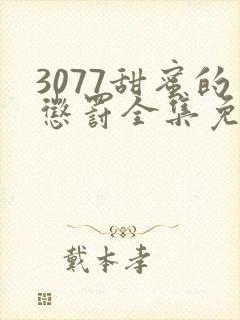 3077甜蜜的
惩罚全集免
戴本孝